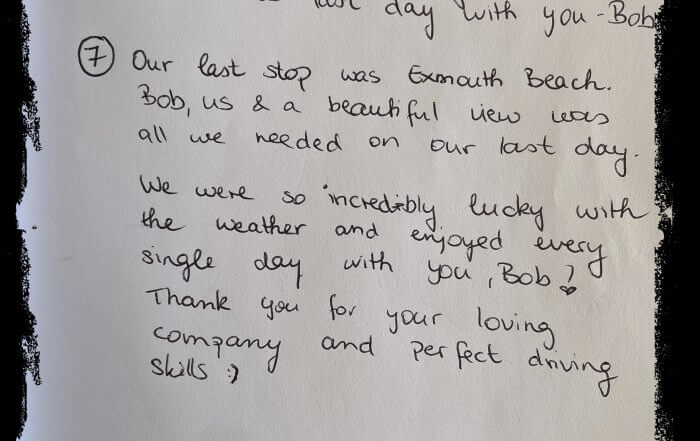 last day with you - Bob
⑦ Our last stop was Exmouth Beach.
Bob, us & a beautiful view was
all we needed on our last day.
We were so incredibly lucky with
the weather and enjoyed every
single day with you, Bob!
Thank you for your loving
company and perfect driving
skills :)